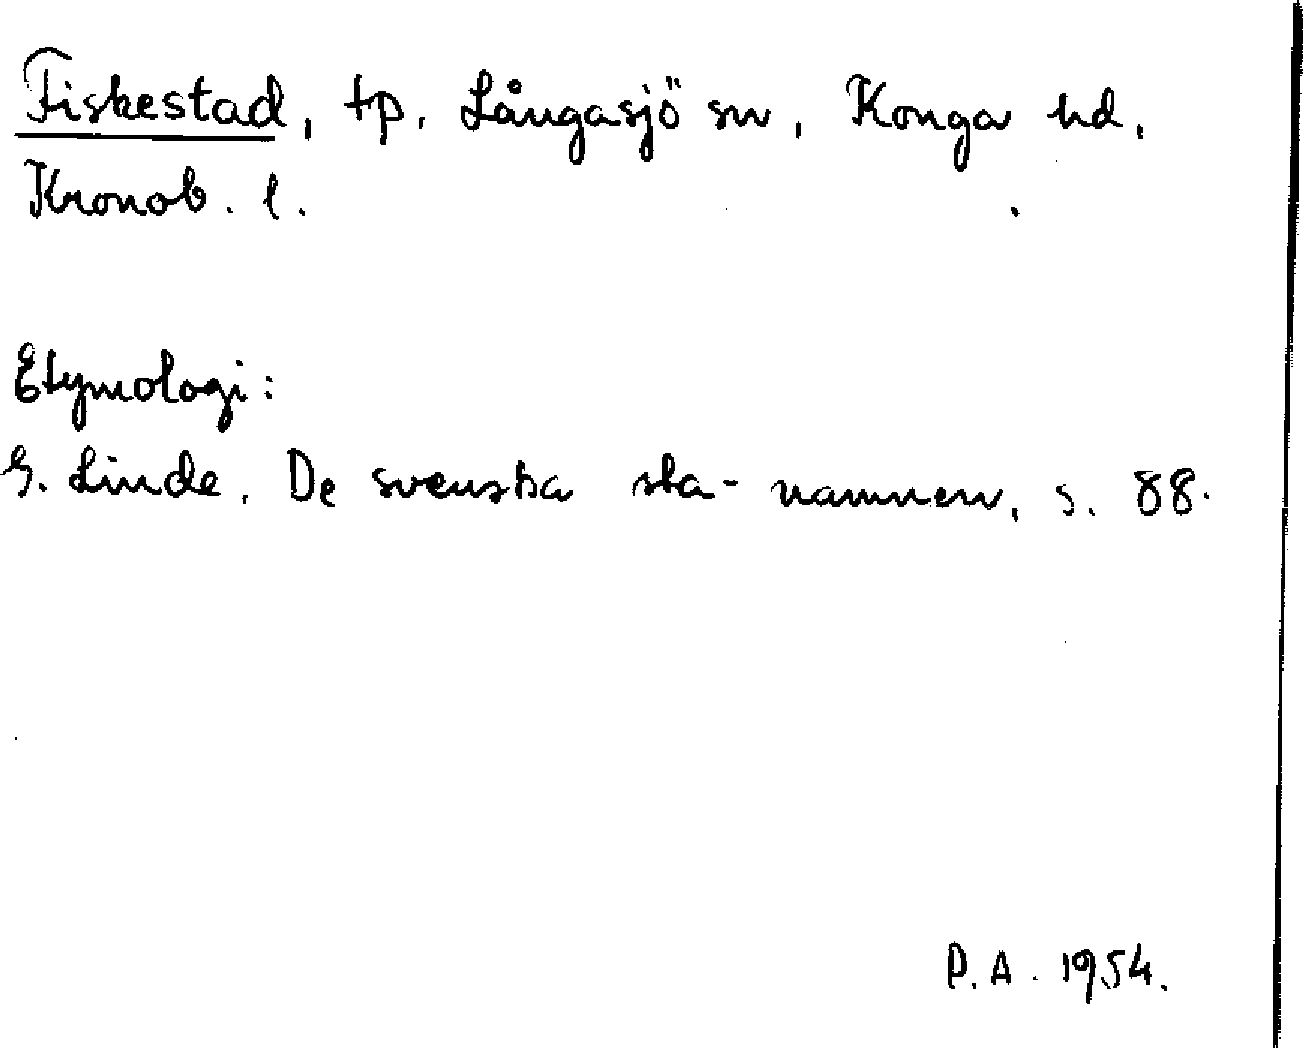 Fiskestad, tp. Långasjö sn, Konga hd,
Kronob. l.
Etymologi:
G. Linde, De svenska sta-namnen, s. 88.
P.A. 1954.